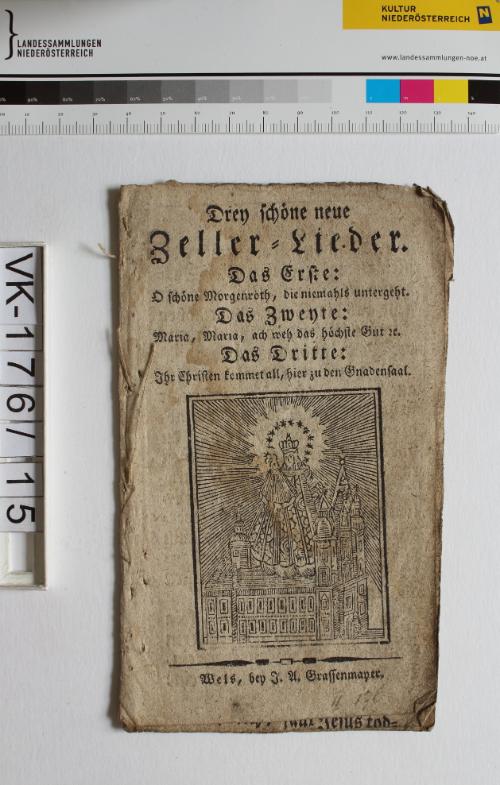 LANDESSAMMLUNGEN
NIEDERÖSTERREICH
KULTUR
NIEDERÖSTERREICH
www.landessammlungen-noe.at
VK-176/15
Drey schöne neue
Zeller-Lieder.
Das Erste:
O schöne Morgenröth, die niemahls untergeht.
Das Zweyte:
Maria, Maria, ach weh das höchste Gut ꝛc.
Das Dritte:
Ihr Christen kommet all, hier zu den Gnadensaal.
Wels, bey J. A. Grassenmayer.
Jesus tod-